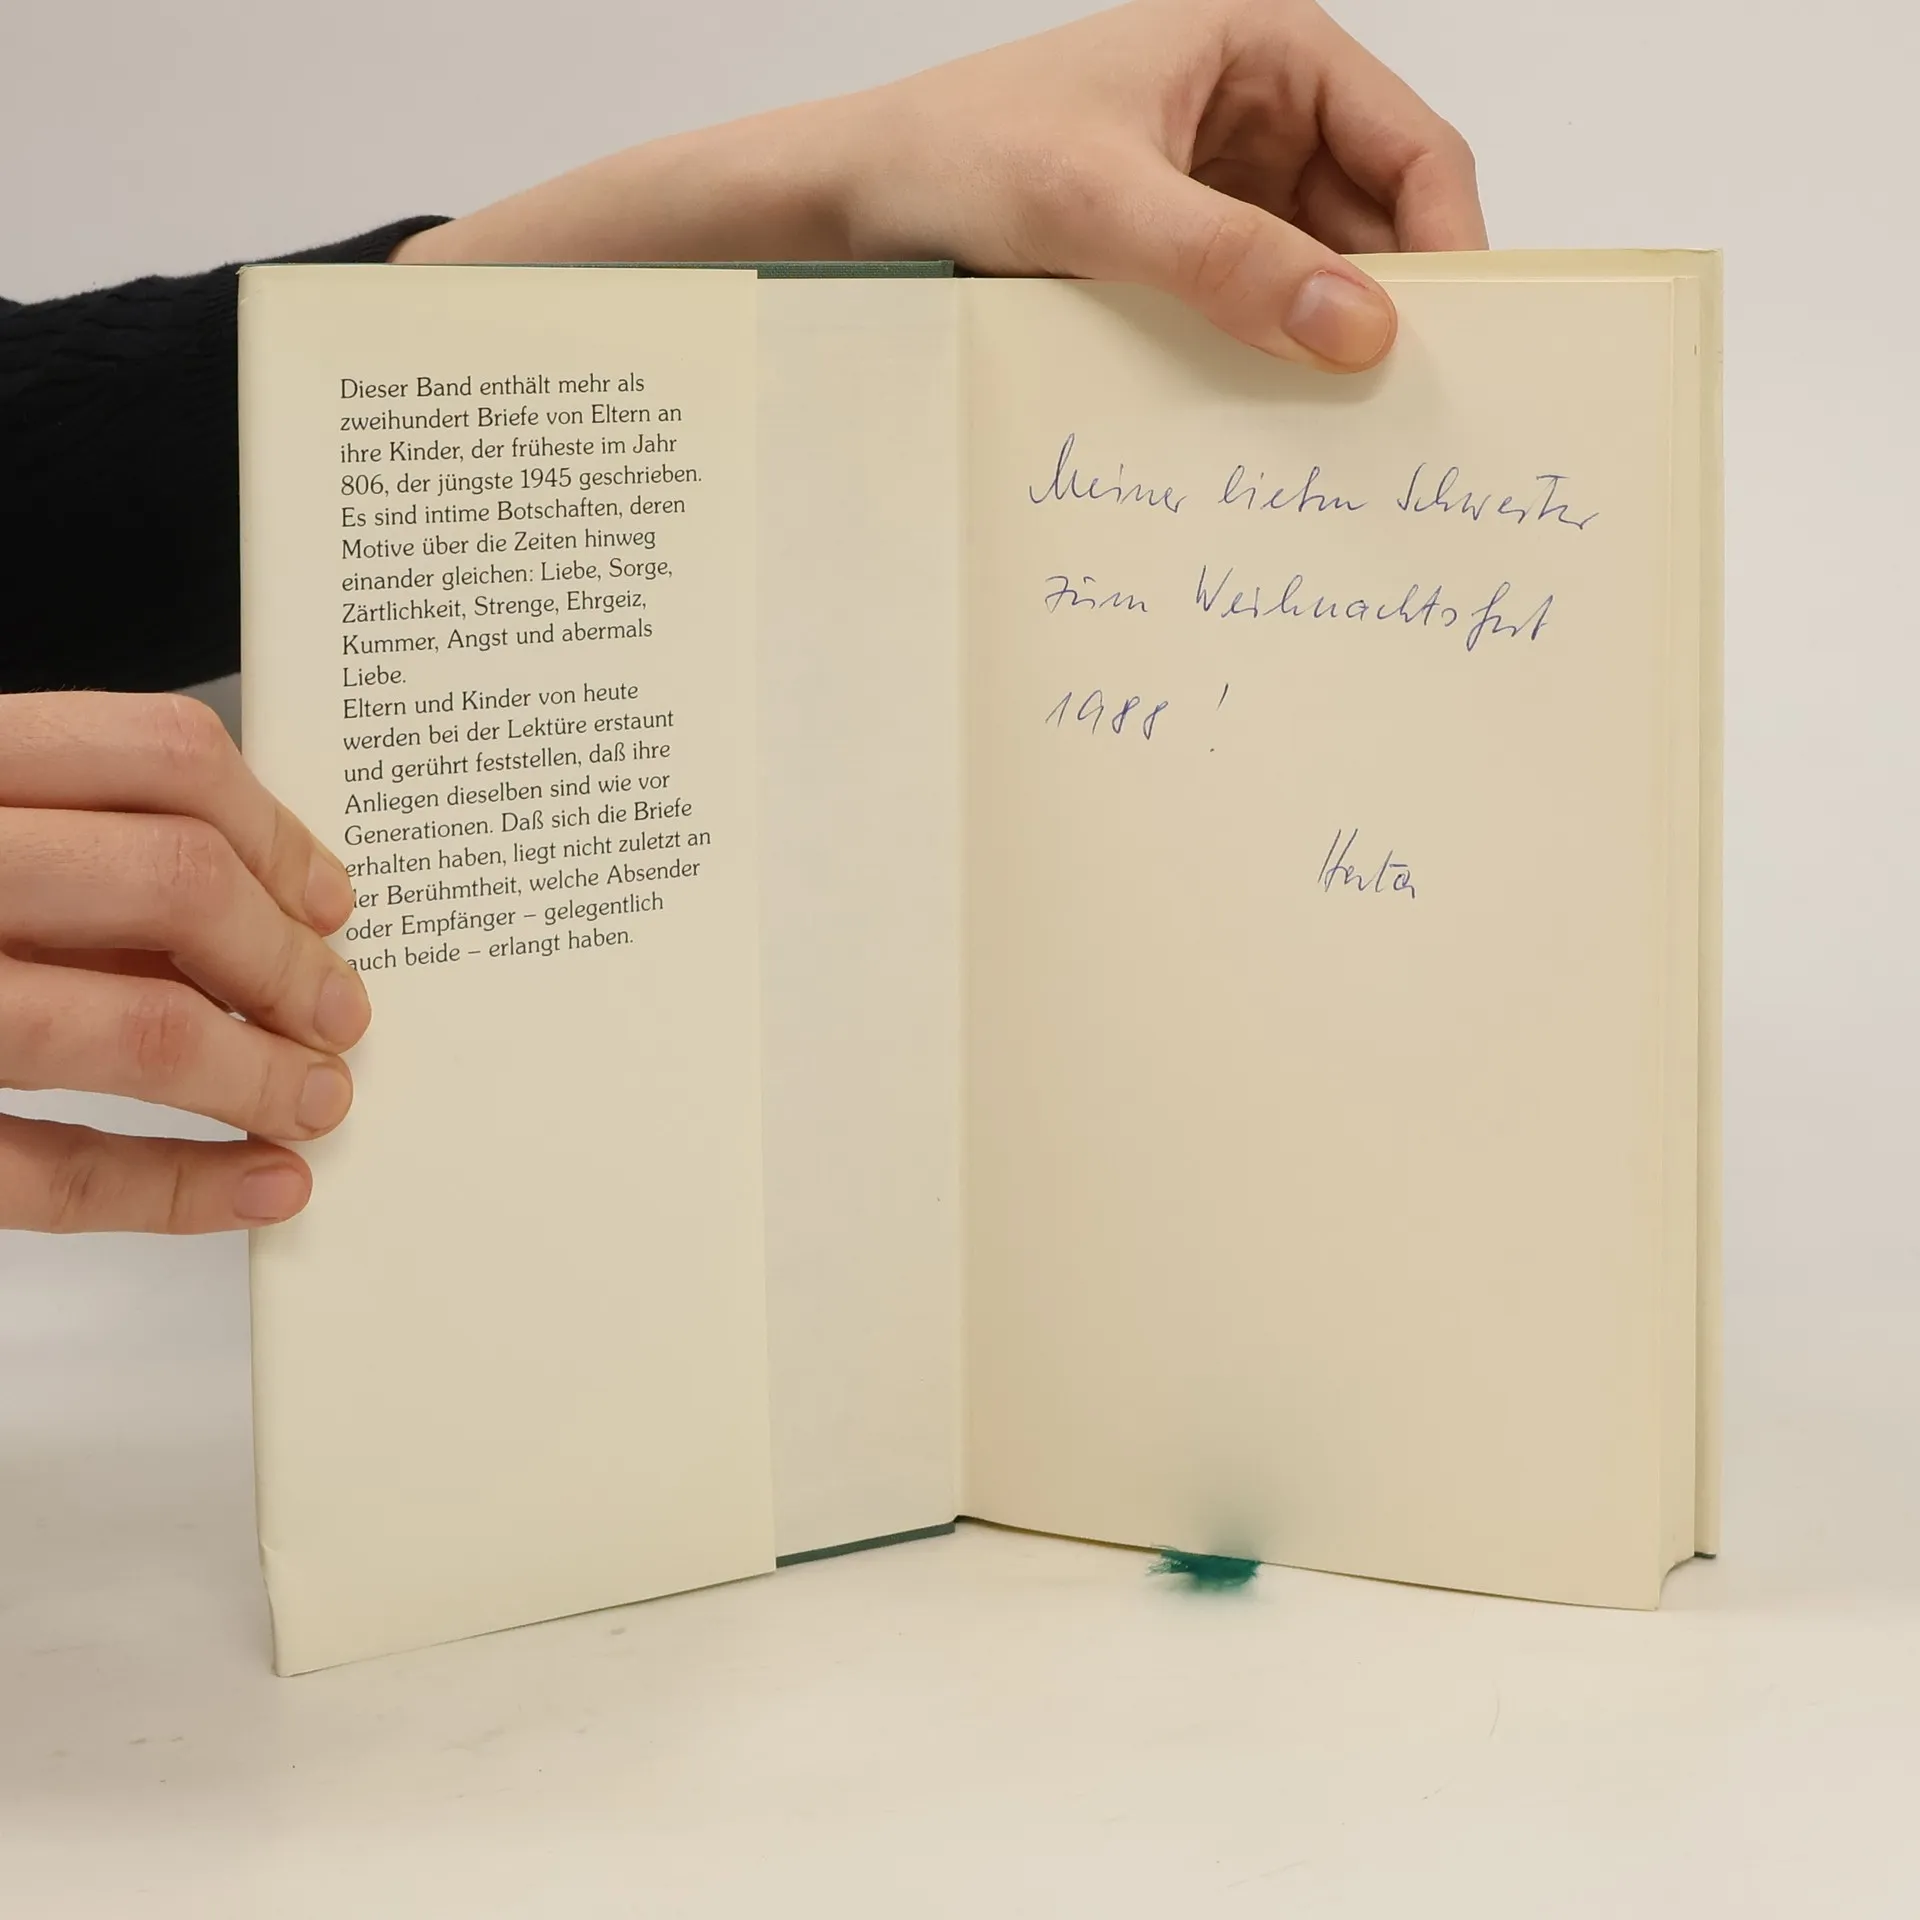 Dieser Band enthält mehr als
zweihundert Briefe von Eltern an
ihre Kinder, der früheste im Jahr
806, der jüngste 1945 geschrieben.
Es sind intime Botschaften, deren
Motive über die Zeiten hinweg
einander gleichen: Liebe, Sorge,
Zärtlichkeit, Strenge, Ehrgeiz,
Kummer, Angst und abermals
Liebe.
Eltern und Kinder von heute
werden bei der Lektüre erstaunt
und gerührt feststellen, daß ihre
Anliegen dieselben sind wie vor
Generationen. Daß sich die Briefe
erhalten haben, liegt nicht zuletzt an
der Berühmtheit, welche Absender
oder Empfänger – gelegentlich
auch beide – erlangt haben.
Meiner lieben Schwester
zum Weihnachtsfest
1988 !
Herta